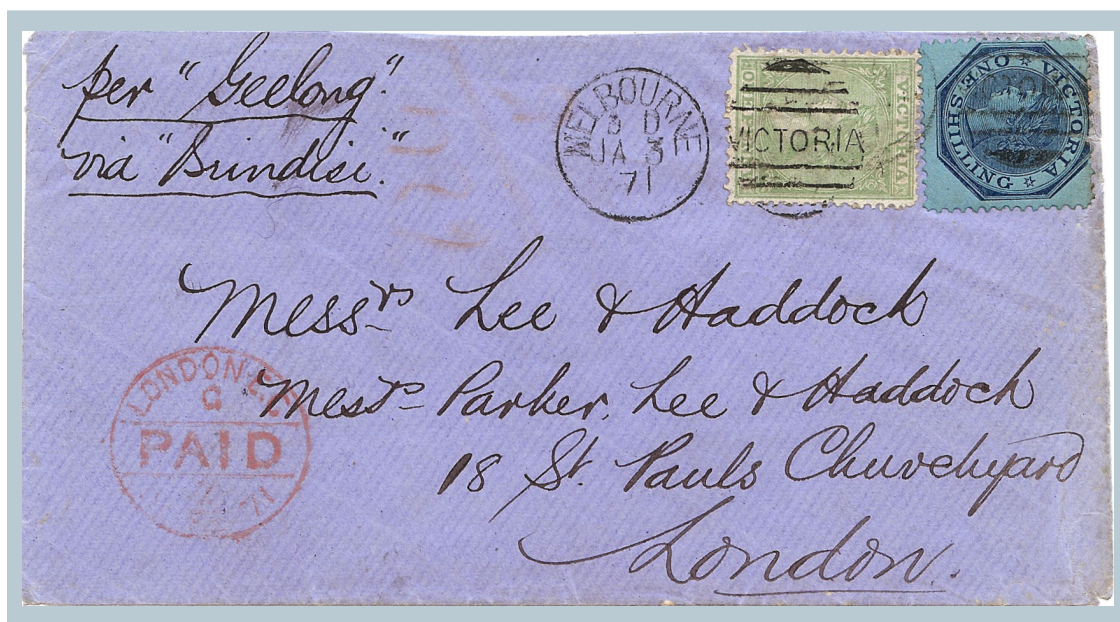 per "Geelong".
via "Brindisi."
MELBOURNE
3 D
JA 3
71
VICTORIA
VICTORIA
VICTORIA
ONE SHILLING
Messrs Lee & Haddock
Messrs Parker, Lee & Haddock
18 St. Pauls Churchyard
London.
LONDON E.C
PAID
71